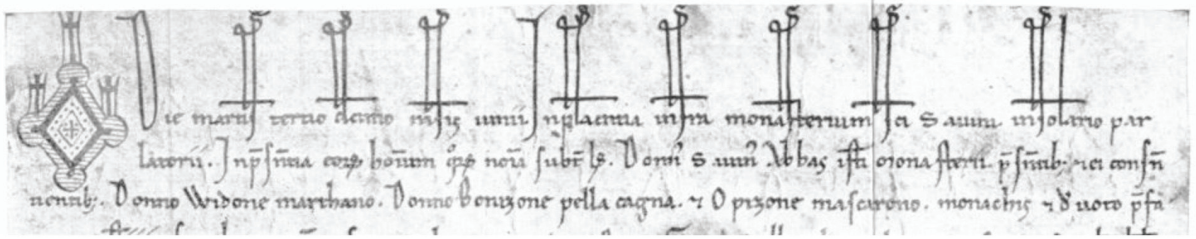 Die martis tertio decimo m̅sis iunii Jn placitia infra monasterium sci Sauini. in solario par
latorii. Jn p̅sn̅tia coꝝ hom̅um qꝝ noi̅a subt̅ ls̅. Domn̅ Sauin̅ Abbas isti monasterii p̅sn̅tib; ⁊ ei consn̅
tientib;. Donno Widone marchano. Donno Bonizone pella cagna. ⁊ Opizone mascarono. monachis ⁊ d̅uoto p̅fa